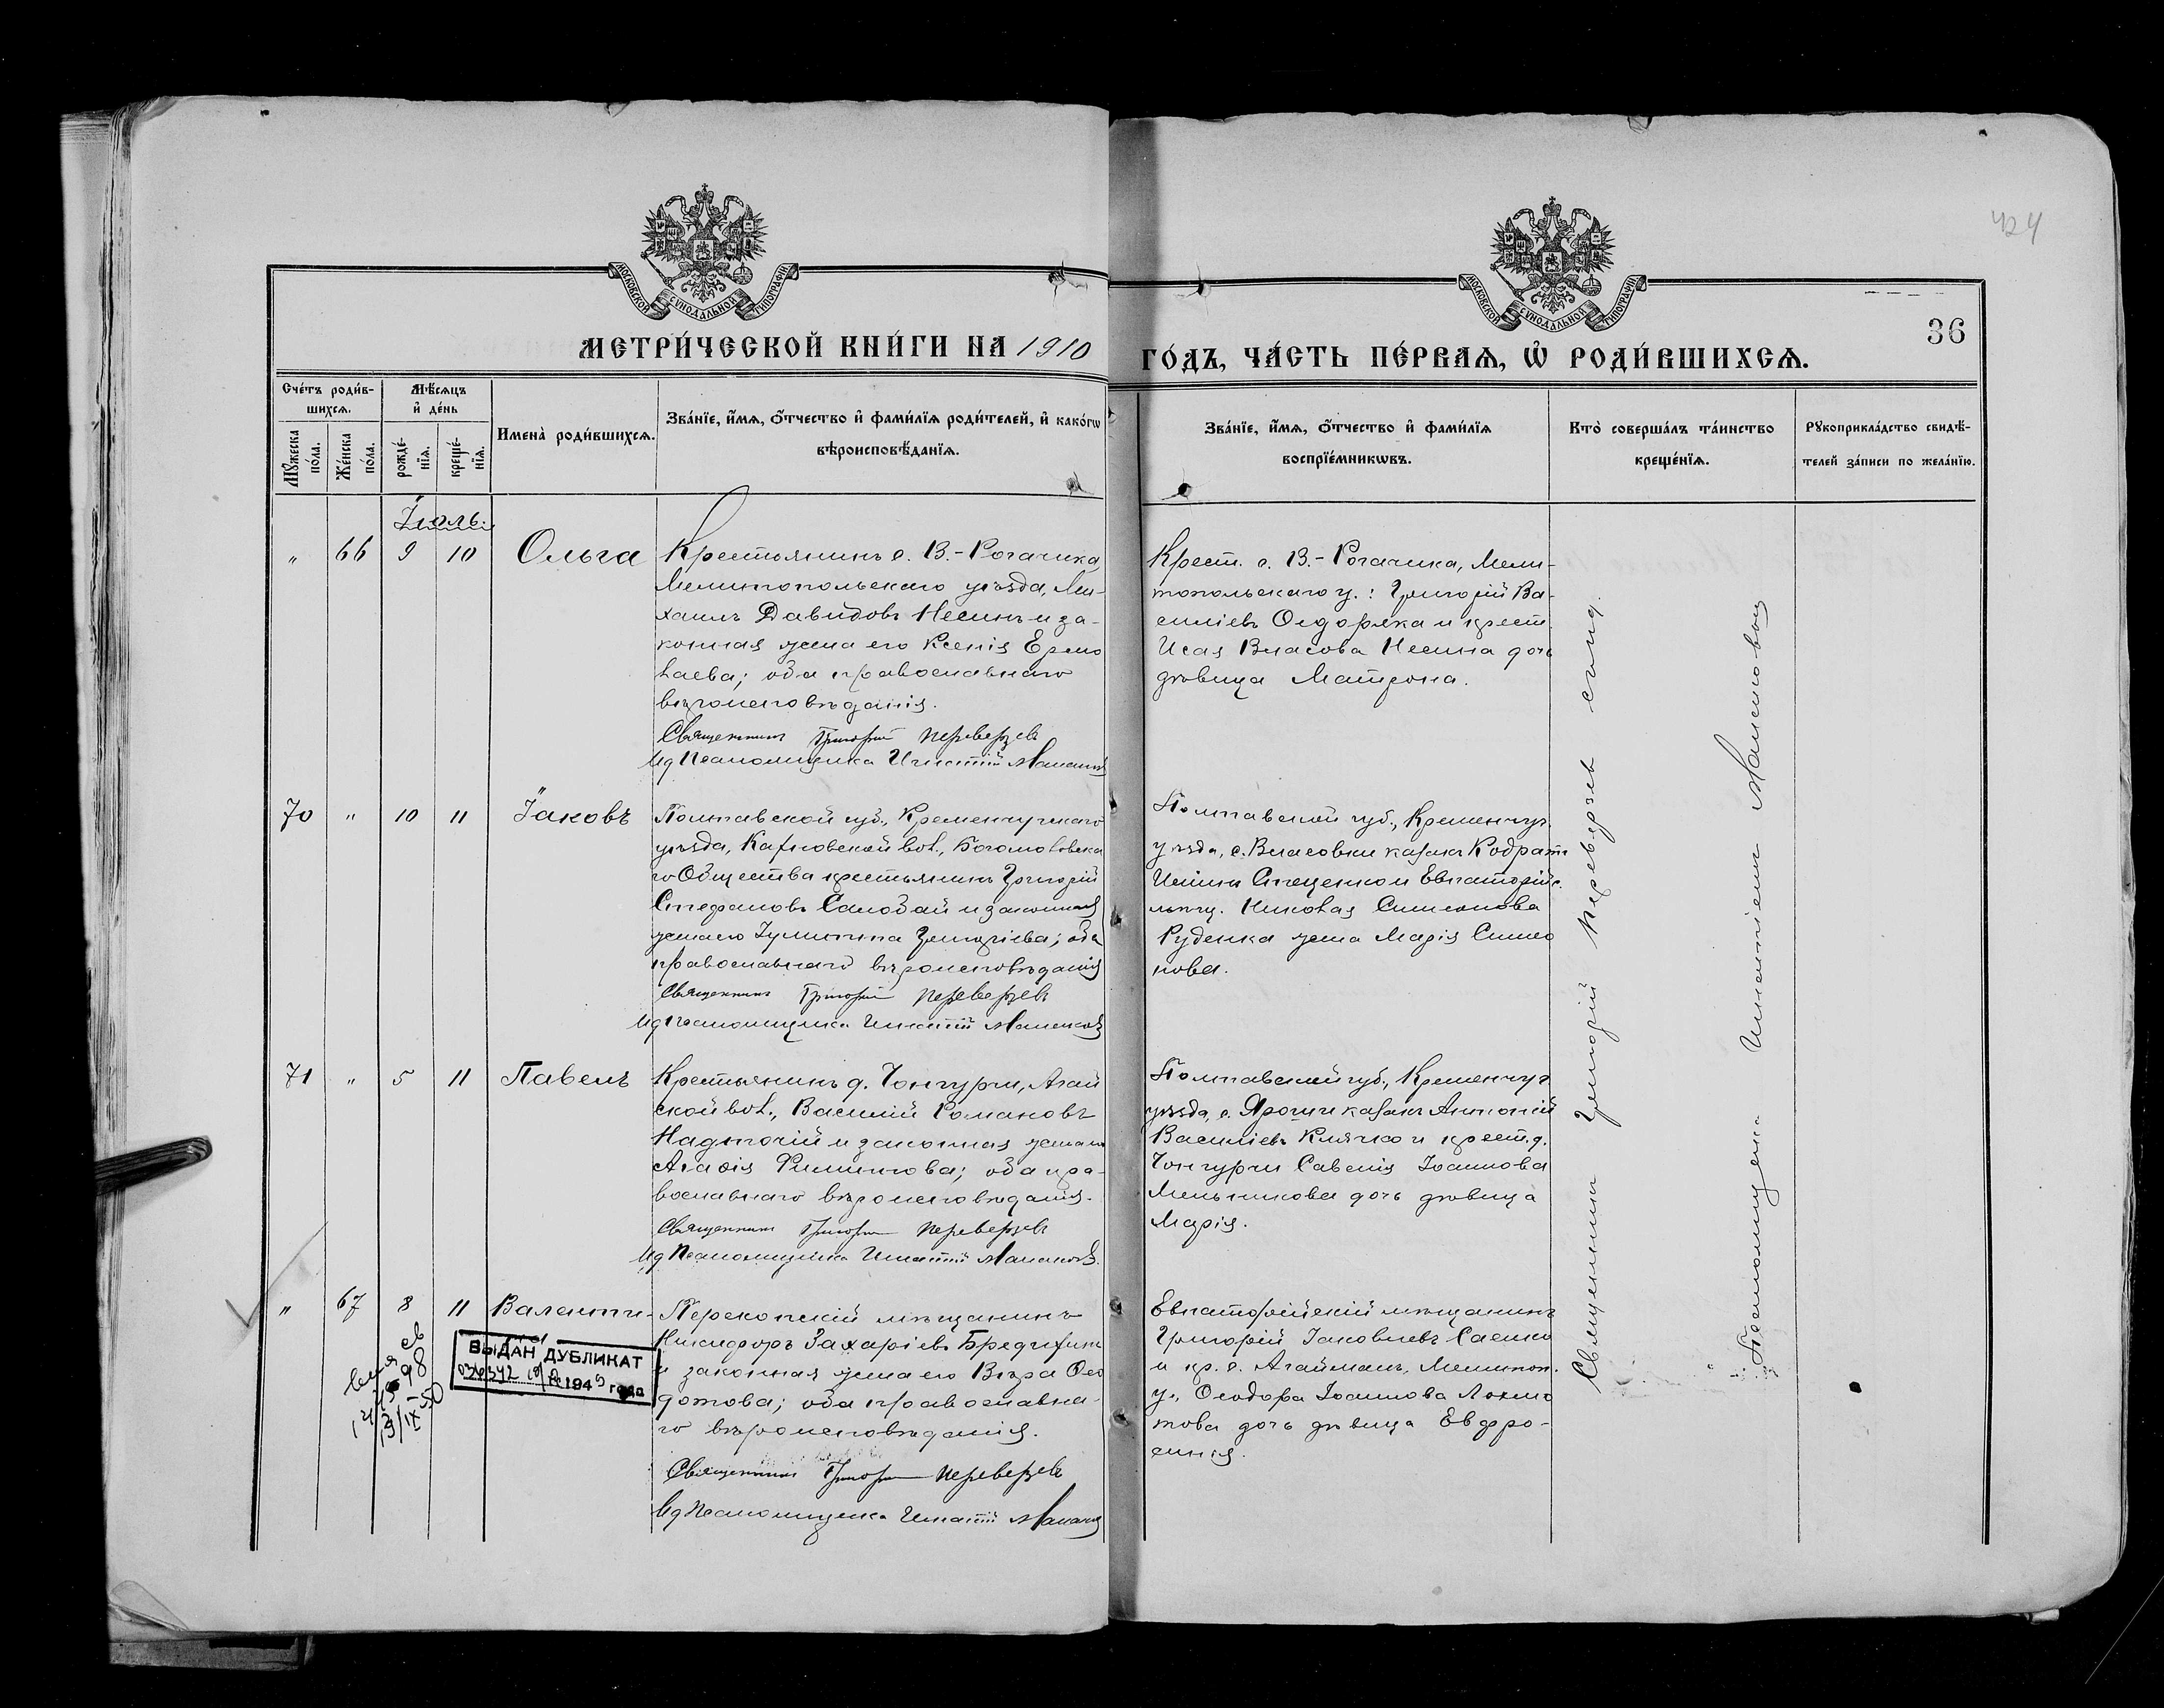 424
МОСКОВСКОЙ СѴНОДАЛЬНОЙ ТИПОГРАФІИ
МОСКОВСКОЙ СѴНОДАЛЬНОЙ ТИПОГРАФІИ
36
МЕТРИ́ЧЕСКОЙ КНИ́ГИ НА 1910
ГО́ДЪ, ЧА́СТЬ ПЕ́РВАѦ, Ѡ҆ РОДИ́ВШИХСѦ.
Сче́тъ роди́в-
шихсѧ.
Мꙋ́жеска
по́ла.
Же́нска
по́ла.
Мѣ́сѧцъ
и҆ де́нь
рожде́-
нїѧ.
креще́-
нїѧ.
Имена̀ роди́вшихсѧ.
Зва́нїе, и҆́мѧ, ѻ҆́тчество и҆ фами́лїѧ роди́телей, и҆ како́гѡ
вѣроисповѣ́данїѧ.
Зва́нїе, и҆́мѧ, ѻ҆́тчество и҆ фами́лїѧ
воспрїе́мникѡвъ.
Кто̀ соверша́лъ та́инство
креще́нїѧ.
Рꙋкоприкла́дство свидѣ́-
телей за́писи по жела́нїю.
Іюль.
" 66 9 10 Ольга
Крестьянинъ с. В.-Рогачика,
Мелитопольскаго уѣзда, Ми-
хаилъ Давидовъ Несинъ и за-
конная жена его Ксенія Ермо
лаева; оба православнаго
вѣроисповѣданія.
Священникъ Григорій Переверзевъ
Ид Псаломщика Игнатій
Крест. с. В.-Рогачика, Мели-
топольскаго у.: Григорій Ва-
силіевъ Сидоряка и крест.
Исая Власова Несина дочь
дѣвица Матрона.
70 " 10 11 Іаковъ
Полтавской губ., Кременчугскаго
уѣзда, вол.,
го Общества крестьянинъ Григорій
Стефановъ и законная
жена его Іулитта Григоріева; оба
православнаго вѣроисповѣданія
Священникъ Григорій Переверзевъ
Ид Псаломщика Игнатій
Полтавской губ., Кременчуг.
уѣзда, с. Власовки казакъ Кодратъ
Стеценко и Евпаторійс.
мѣщ. Николая Симеонова
Руденка жена Марія Симео
нова.
71 " 5 11 Павелъ
Крестьянинъ д. Чонгурчи, Агай
ской вол., Василій Романовъ
Надточій и законная жена его
Агаѳія Филиппова; оба пра-
вославнаго вѣроисповѣданія.
Священникъ Григорій Переверзевъ
Ид Псаломщика Игнатій
Полтавской губ., Кременчуг
уѣзда, с. казакъ Антоній
Василіевъ Клячко и крест. д.
Чонгурчи Савелія Іоаннова
Мельникова дочь дѣвица
Марія.
" 67 8 11 Валенти-
на
Перекопскій мѣщанинъ
Никифоръ Захаріевъ
и законная жена его Вѣра Ѳео
дотова; оба православна-
го вѣроисповѣданія.
Священникъ Григорій Переверзевъ
Ид Псаломщика Игнатій
Евпаторійскій мѣщанинъ
Григорій Іаковлевъ Саенко
и кр. с. Агайманъ, Мелитоп.
у., Ѳеодора Іоаннова
това дочь дѣвица Евфро-
синія.
ВЫДАН ДУБЛИКАТ
194 года
Священникъ Григорій Переверзевъ
Псаломщика Игнатіемъ